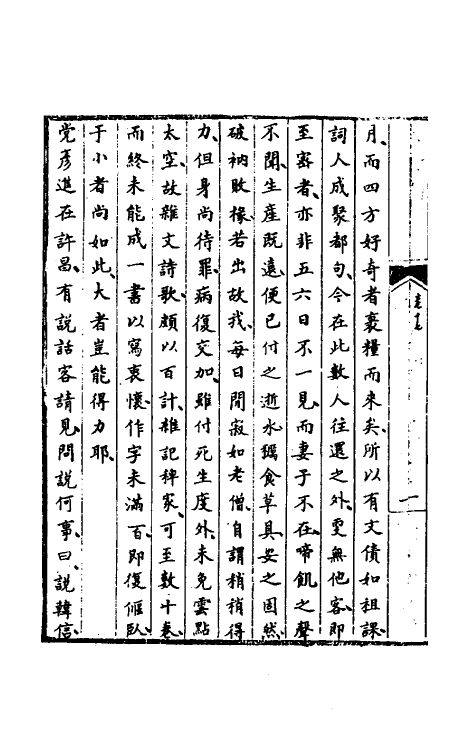 月、而四方好奇者裹糧而来矣、所以有文債如租課、
詞人成聚都句、今在此數人往還之外、更無他客、即
至密者、亦非五六日不一見、而妻子不在、啼飢之聲
不聞、生産既遠、便已付之逝水、糲食草具、安之固然、
破衲敗椽、若出故我、每日閒寂如老僧、自謂稍稍得
力、但身尚待罪、病復交加、雖付死生度外、未免雲點
太空、故雜文詩歌、頗以百計、雜記稗家、可至數十卷、
而終未能成一書、以寫衷懷、作字未滿百、即復偃臥、
于小者尚如此、大者豈能得力耶、
党彥進在許昌、有説話客請見、問説何事、曰、説韓信、
一